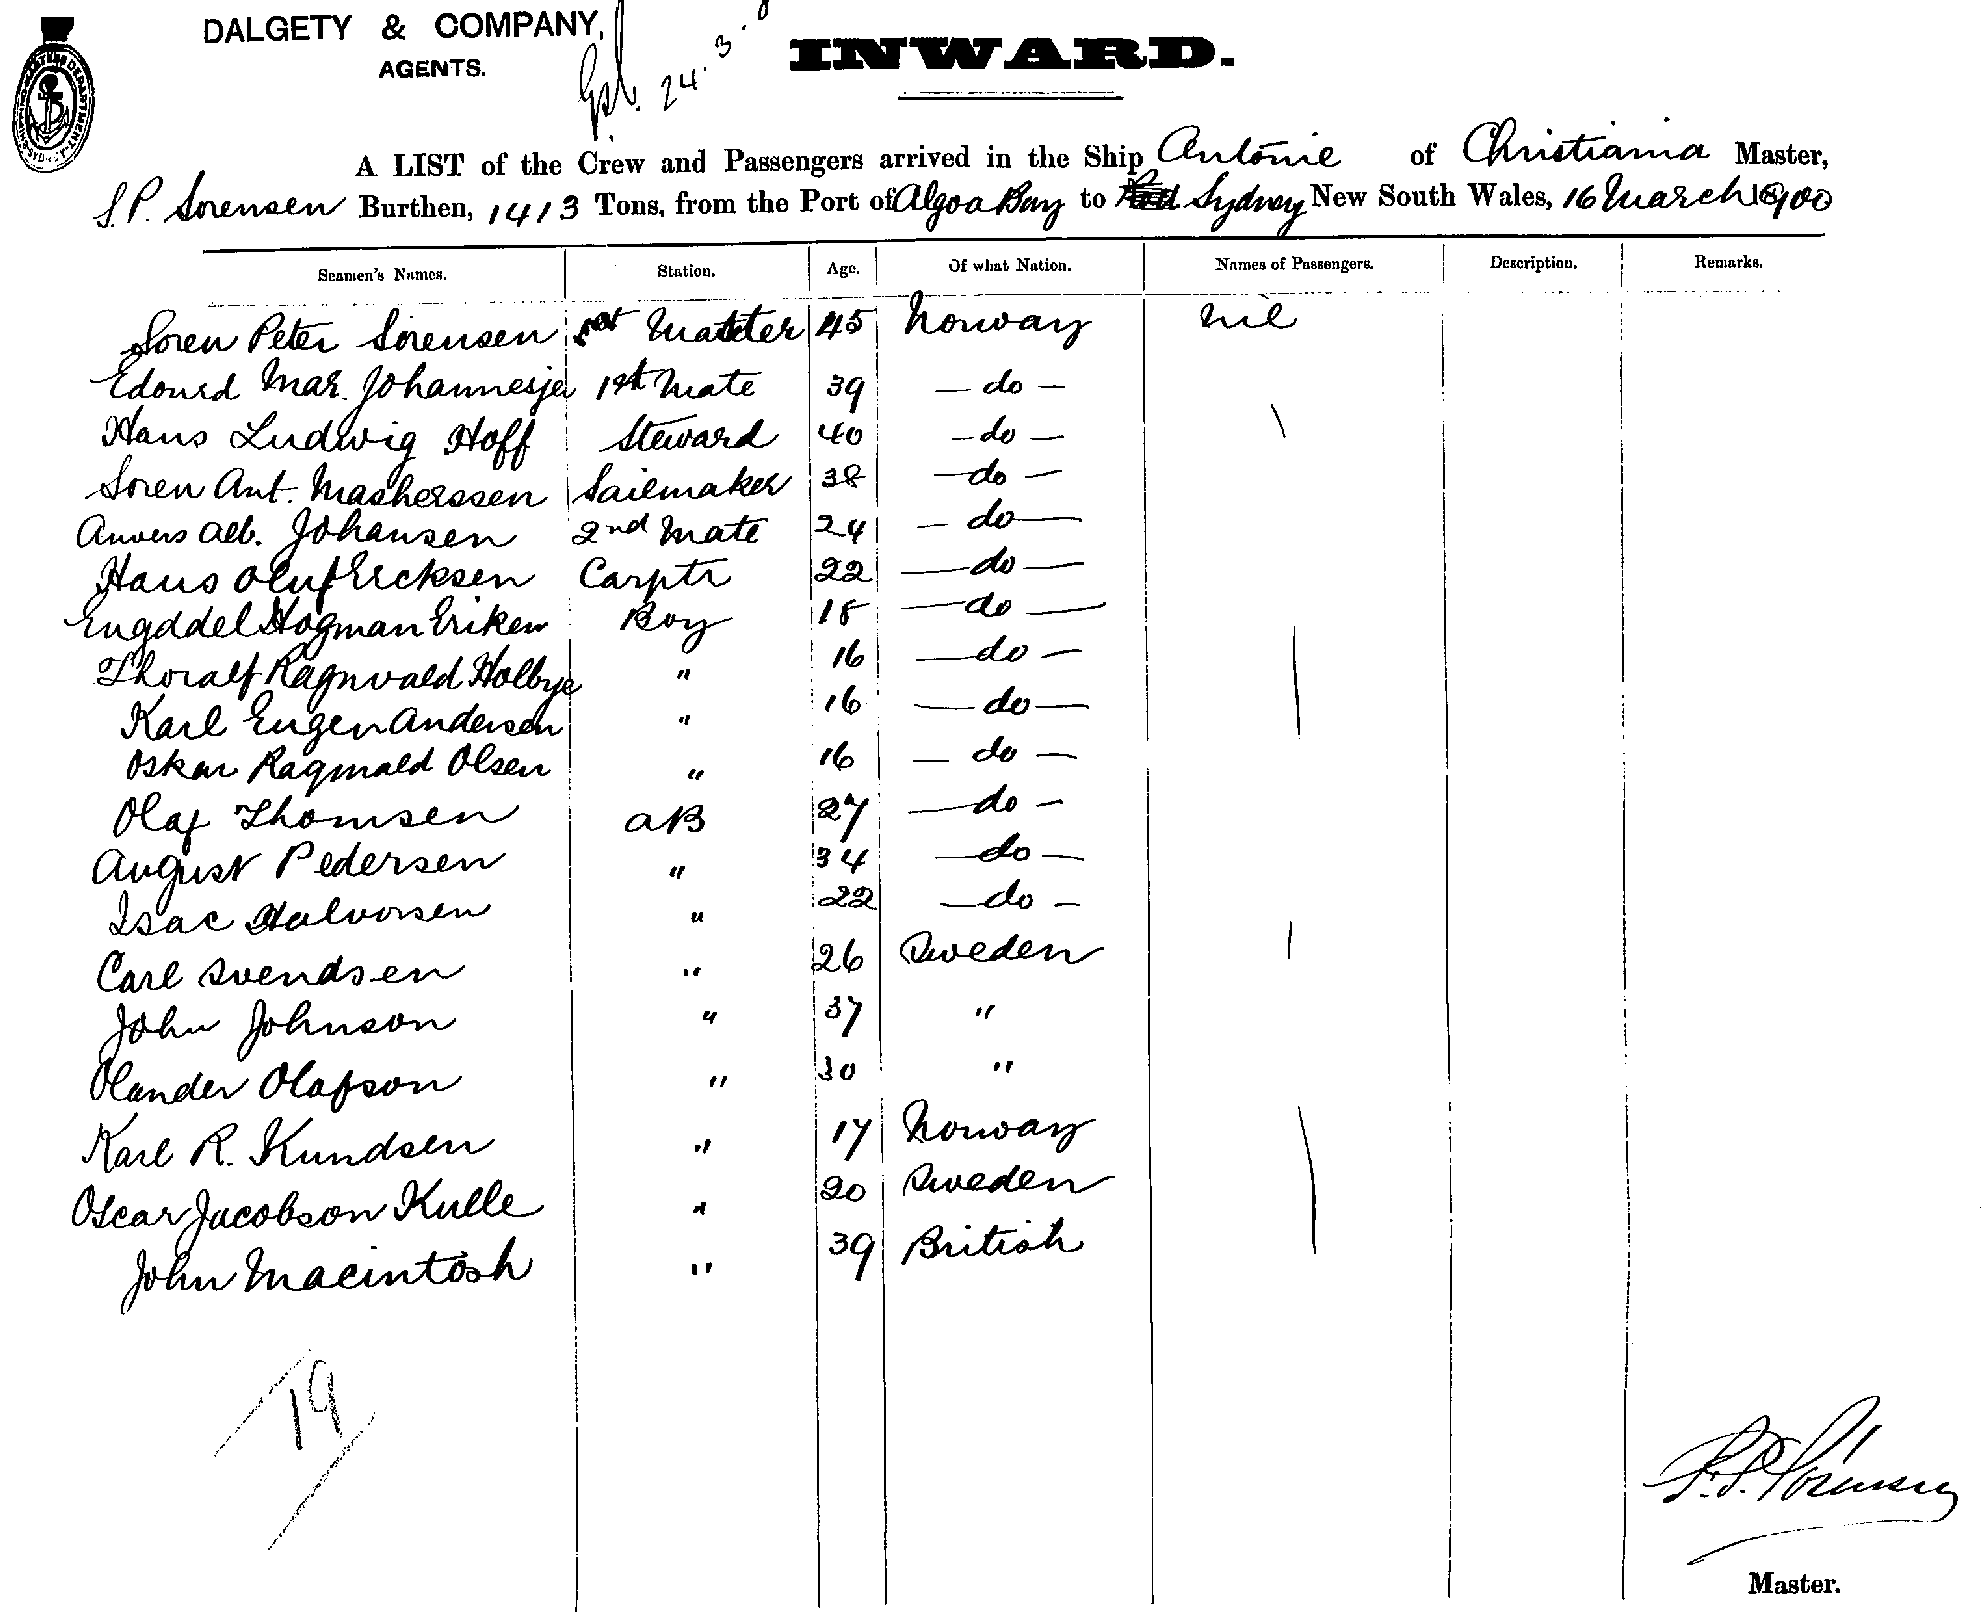 DALGETY & COMPANY,
AGENTS.
24.3.
INWARD.
A LIST of the Crew and Passengers arrived in the Ship Antonie of Christiania Master,
S.P. Sorensen Burthen, 1413 Tons, from the Port of Algoa Bay to Sydney New South Wales, 16 March 1900
Seamen's Names. Station. Age. Of what Nation. Names of Passengers. Description. Remarks.
Soren Peter Sorensen Master 45 Norway nil
Edourd Mar. Johannesjer 1st Mate 39 — do —
Hans Ludwig Hoff Steward 40 — do —
Soren Ant. Masherssen Sailmaker 38 — do —
Anvers Alb. Johansen 2nd Mate 24 — do —
Hans Oluf Ercksen Carptr 22 — do —
Engddel Hogman Eriken Boy 18 — do —
Thoralf Ragnvald Holbye " 16 — do —
Karl Eugen Andersen " 16 — do —
Oskar Ragnvald Olsen " 16 — do —
Olaf Thomsen AB 27 — do —
August Pedersen " 34 — do —
Isac Halvorsen " 22 — do —
Carl Svendsen " 26 Sweden
John Johnson " 37 "
Olander Olafson " 30 "
Karl R. Kundsen " 17 Norway
Oscar Jacobson Kulle " 20 Sweden
John Macintosh " 39 British
19
S.P. Sörensen
Master.